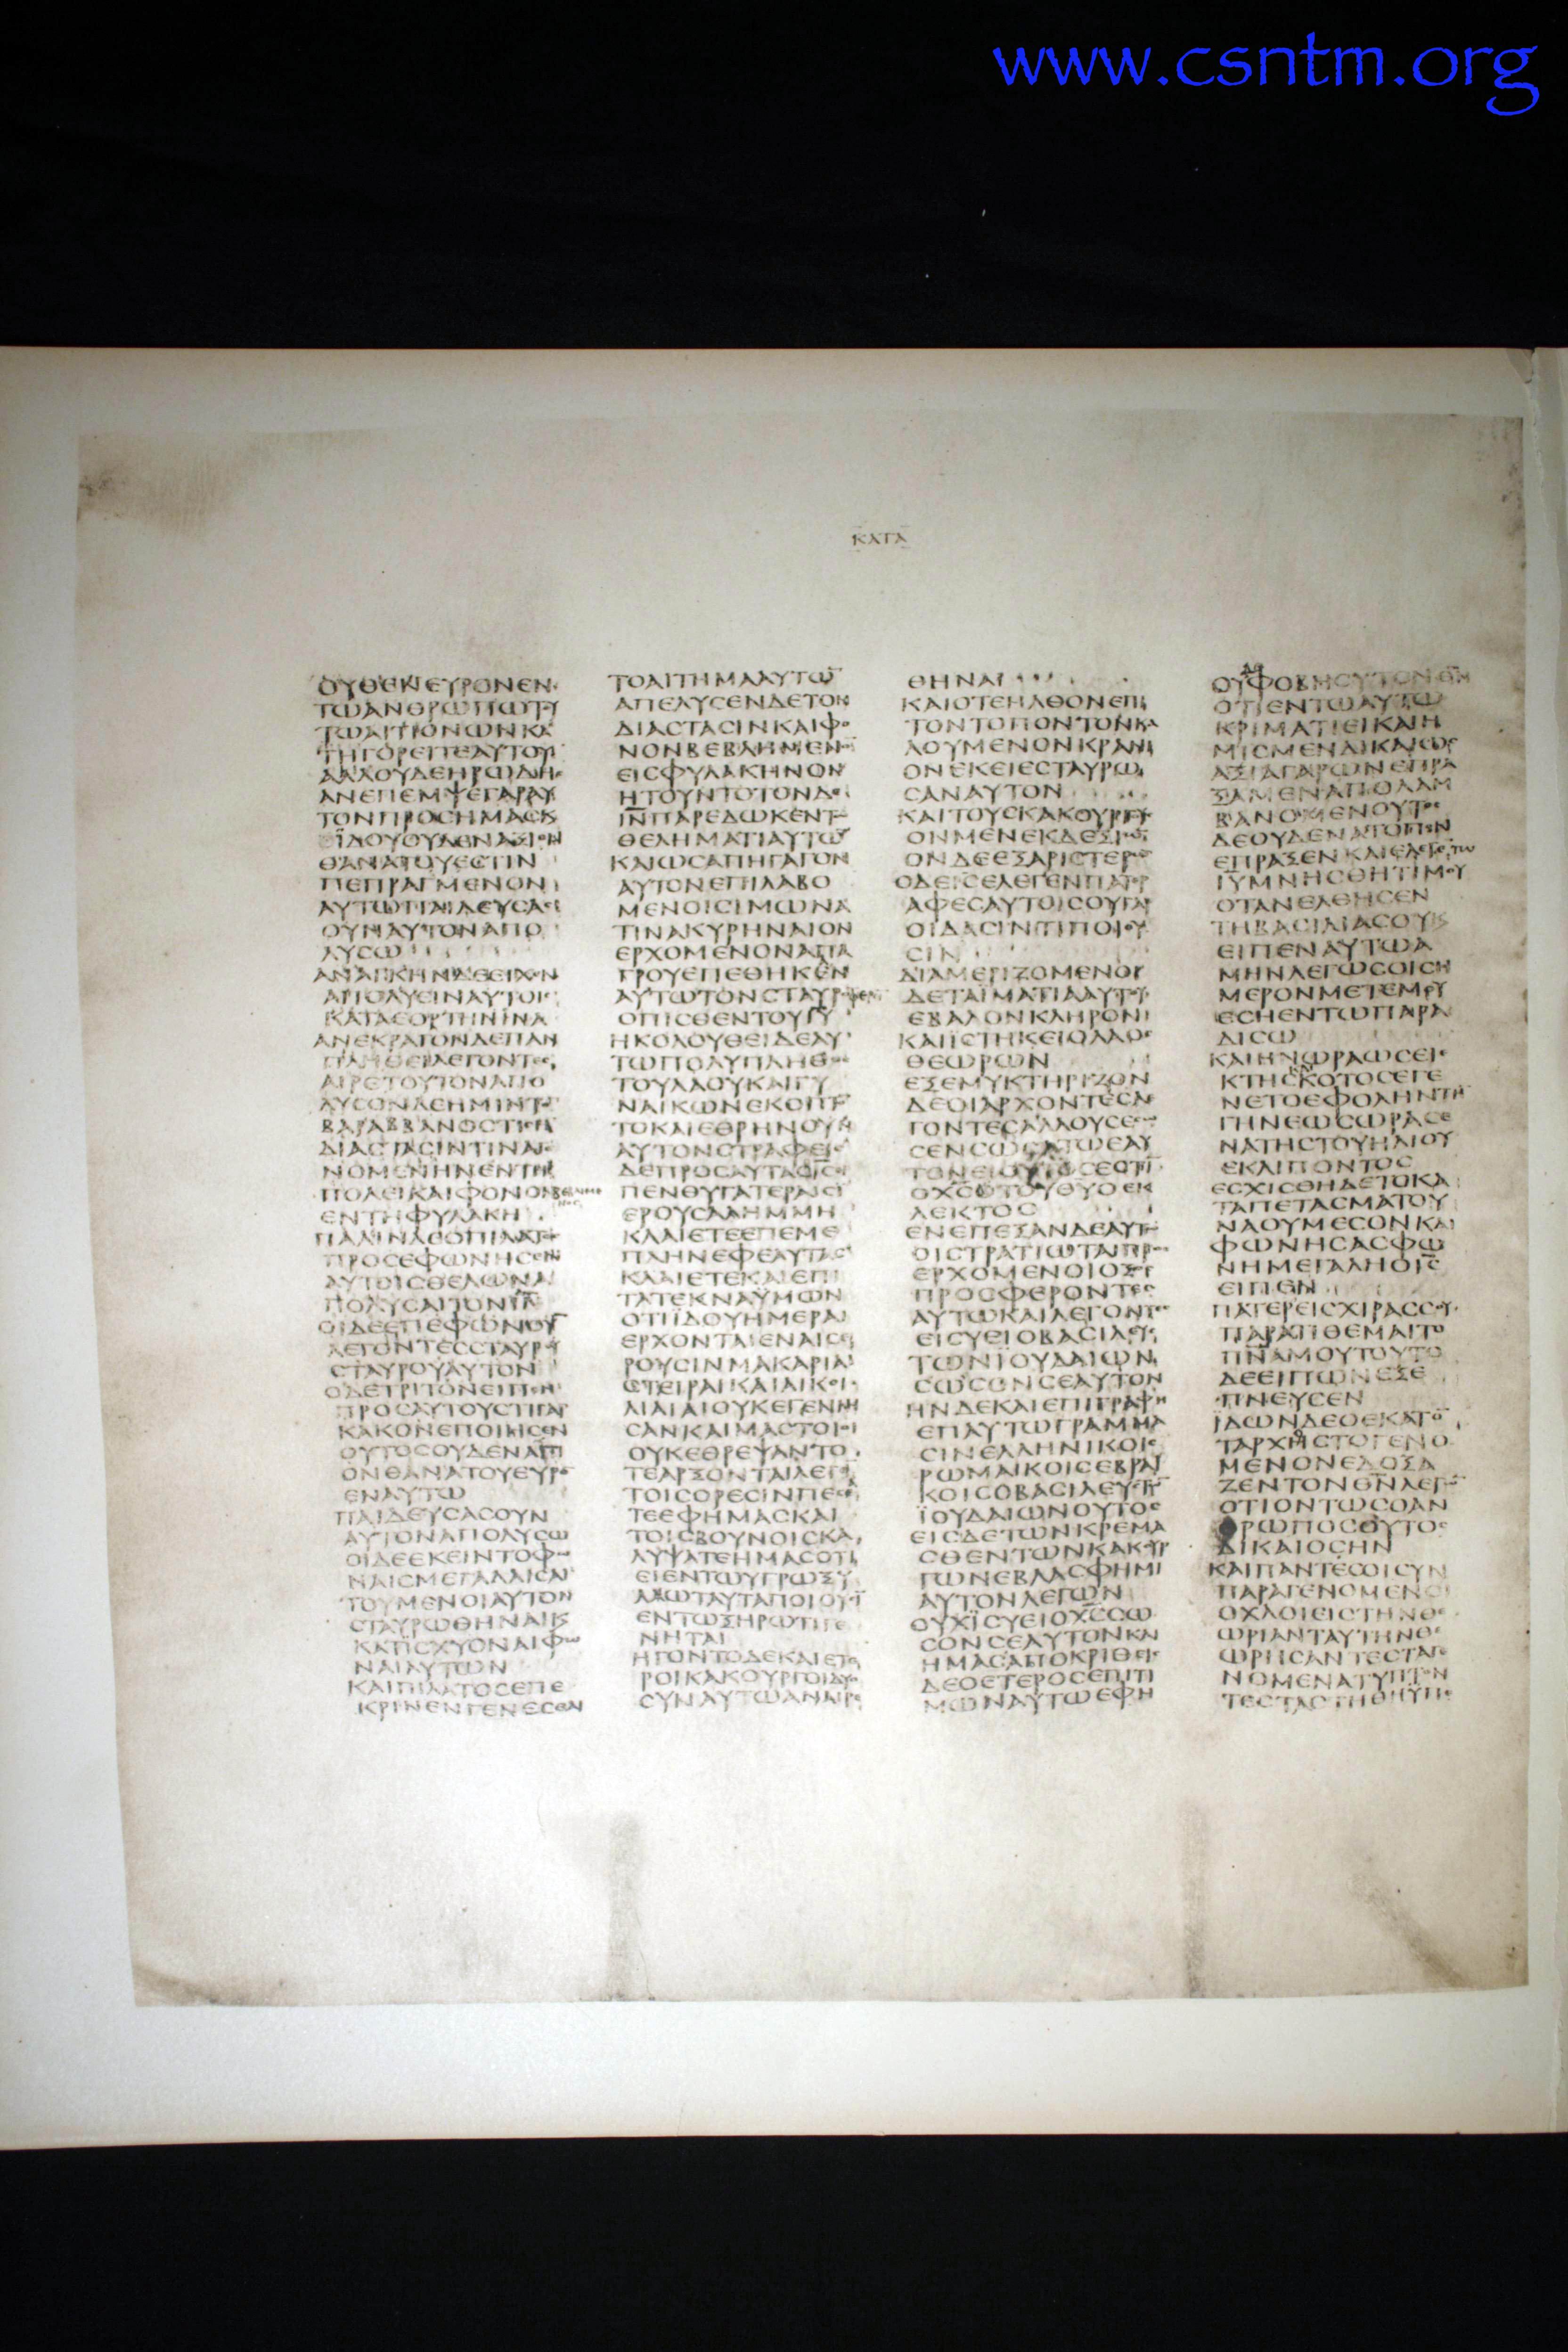 www.csntm.org
ΚΑΤΑ
ΟΥΘΕΝΕΥΡΟΝΕΝ
ΤΩΑΝΘΡΩΠΩΤΟΥ
ΤΩΑΙΤΙΟΝΩΝΚΑ
ΤΗΓΟΡΕΙΤΕΑΥΤΟΥ
ΑΛΛΟΥΔΕΗΡΩΔΗ
ΑΝΕΠΕΜΨΕΓΑΡΑΥ
ΤΟΝΠΡΟΣΗΜΑΣΚ
ΪΔΟΥΟΥΔΕΝΑΞΙΟΝ
ΘΑΝΑΤΟΥΕΣΤΙΝ
ΠΕΠΡΑΓΜΕΝΟΝ
ΑΥΤΩΠΑΙΔΕΥΣΑΣ
ΟΥΝΑΥΤΟΝΑΠΟ
ΛΥΣΩ
ΑΝΑΓΚΗΝΔΕΕΙΧΕΝ
ΑΠΟΛΥΕΙΝΑΥΤΟΙΣ
ΚΑΤΑΕΟΡΤΗΝΙΝΑ
ΑΝΕΚΡΑΓΟΝΔΕΠΑΝ
ΠΛΗΘΕΙΛΕΓΟΝΤΕΣ
ΑΙΡΕΤΟΥΤΟΝΑΠΟ
ΛΥΣΟΝΔΕΗΜΙΝΤΟ
ΒΑΡΑΒΒΑΝΟΣΤΙΣΗΝ
ΔΙΑΣΤΑΣΙΝΤΙΝΑΓΕ
ΝΟΜΕΝΗΝΕΝΤΗ
ΠΟΛΕΙΚΑΙΦΟΝΟΝ
ΕΝΤΗΦΥΛΑΚΗ
ΠΑΛΙΝΔΕΟΠΙΛΑΤΟΣ
ΠΡΟΣΕΦΩΝΗΣΕΝ
ΑΥΤΟΙΣΘΕΛΩΝΑ
ΠΟΛΥΣΑΙΤΟΝΙΝ
ΟΙΔΕΕΠΕΦΩΝΟΥΝ
ΛΕΓΟΝΤΕΣΣΤΑΥΡΟΥ
ΣΤΑΥΡΟΥΑΥΤΟΝ
ΟΔΕΤΡΙΤΟΝΕΙΠΕΝ
ΠΡΟΣΑΥΤΟΥΣΤΙΓΑΡ
ΚΑΚΟΝΕΠΟΙΗΣΕΝ
ΟΥΤΟΣΟΥΔΕΝΑΙΤΙ
ΟΝΘΑΝΑΤΟΥΕΥΡΟ
ΕΝΑΥΤΩ
ΠΑΙΔΕΥΣΑΣΟΥΝ
ΑΥΤΟΝΑΠΟΛΥΣΩ
ΟΙΔΕΕΚΕΙΝΤΟΦΩ
ΝΑΙΣΜΕΓΑΛΑΙΣΑΙ
ΤΟΥΜΕΝΟΙΑΥΤΟΝ
ΣΤΑΥΡΩΘΗΝΑΙΚ
ΚΑΤΙΣΧΥΟΝΑΙΦΩ
ΝΑΙΑΥΤΩΝ
ΚΑΙΠΙΛΑΤΟΣΕΠΕ
ΚΡΙΝΕΝΓΕΝΕΣΘΑΙ
ΤΟΑΙΤΗΜΑΑΥΤΩ
ΑΠΕΛΥΣΕΝΔΕΤΟΝ
ΔΙΑΣΤΑΣΙΝΚΑΙΦΟ
ΝΟΝΒΕΒΛΗΜΕΝΟ
ΕΙΣΦΥΛΑΚΗΝΟΝ
ΗΤΟΥΝΤΟΤΟΝΔΕ
ΙΝΠΑΡΕΔΩΚΕΝΤΩ
ΘΕΛΗΜΑΤΙΑΥΤΩ
ΚΑΙΩΣΑΠΗΓΑΓΟΝ
ΑΥΤΟΝΕΠΙΛΑΒΟ
ΜΕΝΟΙΣΙΜΩΝΑ
ΤΙΝΑΚΥΡΗΝΑΙΟΝ
ΕΡΧΟΜΕΝΟΝΑΠΑ
ΓΡΟΥΕΠΕΘΗΚΕΝ
ΑΥΤΩΤΟΝΣΤΑΥΡΟ
ΟΠΙΣΘΕΝΤΟΥΙΥ
ΗΚΟΛΟΥΘΕΙΔΕΑΥ
ΤΩΠΟΛΥΠΛΗΘΟΣ
ΤΟΥΛΑΟΥΚΑΙΓΥ
ΝΑΙΚΩΝΕΚΟΠΤΟ
ΤΟΚΑΙΕΘΡΗΝΟΥΝ
ΑΥΤΟΝΣΤΡΑΦΕΙΣ
ΔΕΠΡΟΣΑΥΤΑΣΟΙΣ
ΠΕΝΘΥΓΑΤΕΡΑΙΣΙ
ΕΡΟΥΣΑΛΗΜΜΗ
ΚΛΑΙΕΤΕΕΠΕΜΕ
ΠΛΗΝΕΦΕΑΥΤΑΣ
ΚΛΑΙΕΤΕΚΑΙΕΠΙ
ΤΑΤΕΚΝΑΥΜΩΝ
ΟΤΙΪΔΟΥΗΜΕΡΑΙ
ΕΡΧΟΝΤΑΙΕΝΑΙΣΕ
ΡΟΥΣΙΝΜΑΚΑΡΙΑΙ
ΣΤΕΙΡΑΙΚΑΙΑΙΚΟΙ
ΛΙΑΙΑΙΟΥΚΕΓΕΝΝΗ
ΣΑΝΚΑΙΜΑΣΤΟΙΟΙ
ΟΥΚΕΘΡΕΨΑΝΤΟ
ΤΕΑΡΞΟΝΤΑΙΛΕΓΙ
ΤΟΙΣΟΡΕΣΙΝΠΕΣΑ
ΤΕΕΦΗΜΑΣΚΑΙ
ΤΟΙΣΒΟΥΝΟΙΣΚΑ
ΛΥΨΑΤΕΗΜΑΣΟΤΙ
ΕΙΕΝΤΩΥΓΡΩΞΥ
ΛΩΤΑΥΤΑΠΟΙΟΥΣΙ
ΕΝΤΩΞΗΡΩΤΙΓΕ
ΝΗΤΑΙ
ΗΓΟΝΤΟΔΕΚΑΙΕΤΕ
ΡΟΙΚΑΚΟΥΡΓΟΙΔΥΟ
ΣΥΝΑΥΤΩΑΝΑΙΡΕ
ΘΗΝΑΙ
ΚΑΙΟΤΕΗΛΘΟΝΕΠΙ
ΤΟΝΤΟΠΟΝΤΟΝΚΑ
ΛΟΥΜΕΝΟΝΚΡΑΝΙ
ΟΝΕΚΕΙΕΣΤΑΥΡΩ
ΣΑΝΑΥΤΟΝ
ΚΑΙΤΟΥΣΚΑΚΟΥΡΓΟΥ
ΟΝΜΕΝΕΚΔΕΞΙΩ
ΟΝΔΕΕΞΑΡΙΣΤΕΡΩ
ΟΔΕΙΣΕΛΕΓΕΝΠΑΤΕΡ
ΑΦΕΣΑΥΤΟΙΣΟΥΓΑΡ
ΟΙΔΑΣΙΝΤΙΠΟΙΟΥ
ΣΙΝ
ΔΙΑΜΕΡΙΖΟΜΕΝΟΙ
ΔΕΤΑΪΜΑΤΙΑΑΥΤΟΥ
ΕΒΑΛΟΝΚΛΗΡΟΝ
ΚΑΙΙΣΤΗΚΕΙΟΛΑΟΣ
ΘΕΩΡΩΝ
ΕΞΕΜΥΚΤΗΡΙΖΟΝ
ΔΕΟΙΑΡΧΟΝΤΕΣΛΕ
ΓΟΝΤΕΣΑΛΛΟΥΣΕΣΩ
ΣΕΝΣΩΣΑΤΩΕΑΥ
ΤΟΝΕΙΟΥΤΟΣΕΣΤΙ
ΟΧΣΟΤΟΥΘΥΟΕΚ
ΛΕΚΤΟΣ
ΕΝΕΠΕΞΑΝΔΕΑΥΤΩ
ΟΙΣΤΡΑΤΙΩΤΑΙΠΡΟΣ
ΕΡΧΟΜΕΝΟΙΟΞΟΣ
ΠΡΟΣΦΕΡΟΝΤΕΣ
ΑΥΤΩΚΑΙΛΕΓΟΝΤΕΣ
ΕΙΣΥΕΙΟΒΑΣΙΛΕΥΣ
ΤΩΝΪΟΥΔΑΙΩΝ
ΣΩΣΟΝΣΕΑΥΤΟΝ
ΗΝΔΕΚΑΙΕΠΙΓΡΑΦΗ
ΕΠΑΥΤΩΓΡΑΜΜΑ
ΣΙΝΕΛΛΗΝΙΚΟΙΣ
ΡΩΜΑΙΚΟΙΣΕΒΡΑΙ
ΚΟΙΣΟΒΑΣΙΛΕΥΣΤΩ
ΪΟΥΔΑΙΩΝΟΥΤΟΣ
ΕΙΣΔΕΤΩΝΚΡΕΜΑ
ΣΘΕΝΤΩΝΚΑΚΟΥΡ
ΓΩΝΕΒΛΑΣΦΗΜΙ
ΑΥΤΟΝΛΕΓΩΝ
ΟΥΧΪΣΥΕΙΟΧΣΣΩ
ΣΟΝΣΕΑΥΤΟΝΚΑΙ
ΗΜΑΣΑΠΟΚΡΙΘΕΙΣ
ΔΕΟΕΤΕΡΟΣΕΠΙΤΙ
ΜΩΝΑΥΤΩΕΦΗ
ΟΥΦΟΒΗΣΥΤΟΝΘΝ
ΟΤΙΕΝΤΩΑΥΤΩ
ΚΡΙΜΑΤΙΕΙΚΑΙΗ
ΜΙΣΜΕΝΔΙΚΑΙΩΣ
ΑΞΙΑΓΑΡΩΝΕΠΡΑ
ΞΑΜΕΝΑΠΟΛΑΜ
ΒΑΝΟΜΕΝΟΥΤΟΣ
ΔΕΟΥΔΕΝΑΤΟΠΟΝ
ΕΠΡΑΞΕΝΚΑΙΕΛΕΓΕΝΤΩ
ΙΥΜΝΗΣΘΗΤΙΜΟΥ
ΟΤΑΝΕΛΘΗΣΕΝ
ΤΗΒΑΣΙΛΙΑΣΟΥΚ
ΕΙΠΕΝΑΥΤΩΑ
ΜΗΝΛΕΓΩΣΟΙΣΗ
ΜΕΡΟΝΜΕΤΕΜΟΥ
ΕΣΗΕΝΤΩΠΑΡΑ
ΔΙΣΩ
ΚΑΙΗΝΩΡΑΩΣΕΙΕ
ΚΤΗΣΚΟΤΟΣΕΓΕ
ΝΕΤΟΕΦΟΛΗΝΤΗ
ΓΗΝΕΩΣΩΡΑΣΕ
ΝΑΤΗΣΤΟΥΗΛΙΟΥ
ΕΚΛΙΠΟΝΤΟΣ
ΕΣΧΙΣΘΗΔΕΤΟΚΑ
ΤΑΠΕΤΑΣΜΑΤΟΥ
ΝΑΟΥΜΕΣΟΝΚΑΙ
ΦΩΝΗΣΑΣΦΩ
ΝΗΜΕΓΑΛΗΟΙΣ
ΕΙΠΕΝ
ΠΑΤΕΡΕΙΣΧΙΡΑΣΣΟΥ
ΠΑΡΑΤΙΘΕΜΑΙΤΟ
ΠΝΑΜΟΥΤΟΥΤΟ
ΔΕΕΙΠΩΝΕΞΕ
ΠΝΕΥΣΕΝ
ΙΔΩΝΔΕΟΕΚΑΤΟ
ΤΑΡΧΗΣΤΟΓΕΝΟ
ΜΕΝΟΝΕΔΟΞΑ
ΖΕΝΤΟΝΘΝΛΕΓΩ
ΟΤΙΟΝΤΩΣΟΑΝ
ΘΡΩΠΟΣΟΥΤΟΣ
ΔΙΚΑΙΟΣΗΝ
ΚΑΙΠΑΝΤΕΣΟΙΣΥΝ
ΠΑΡΑΓΕΝΟΜΕΝΟΙ
ΟΧΛΟΙΕΙΣΤΗΝΘΕ
ΩΡΙΑΝΤΑΥΤΗΝΘΕ
ΩΡΗΣΑΝΤΕΣΤΑΓΕ
ΝΟΜΕΝΑΤΥΠΤΟΝ
ΤΕΣΤΑΣΤΗΘΗΫΠΕ